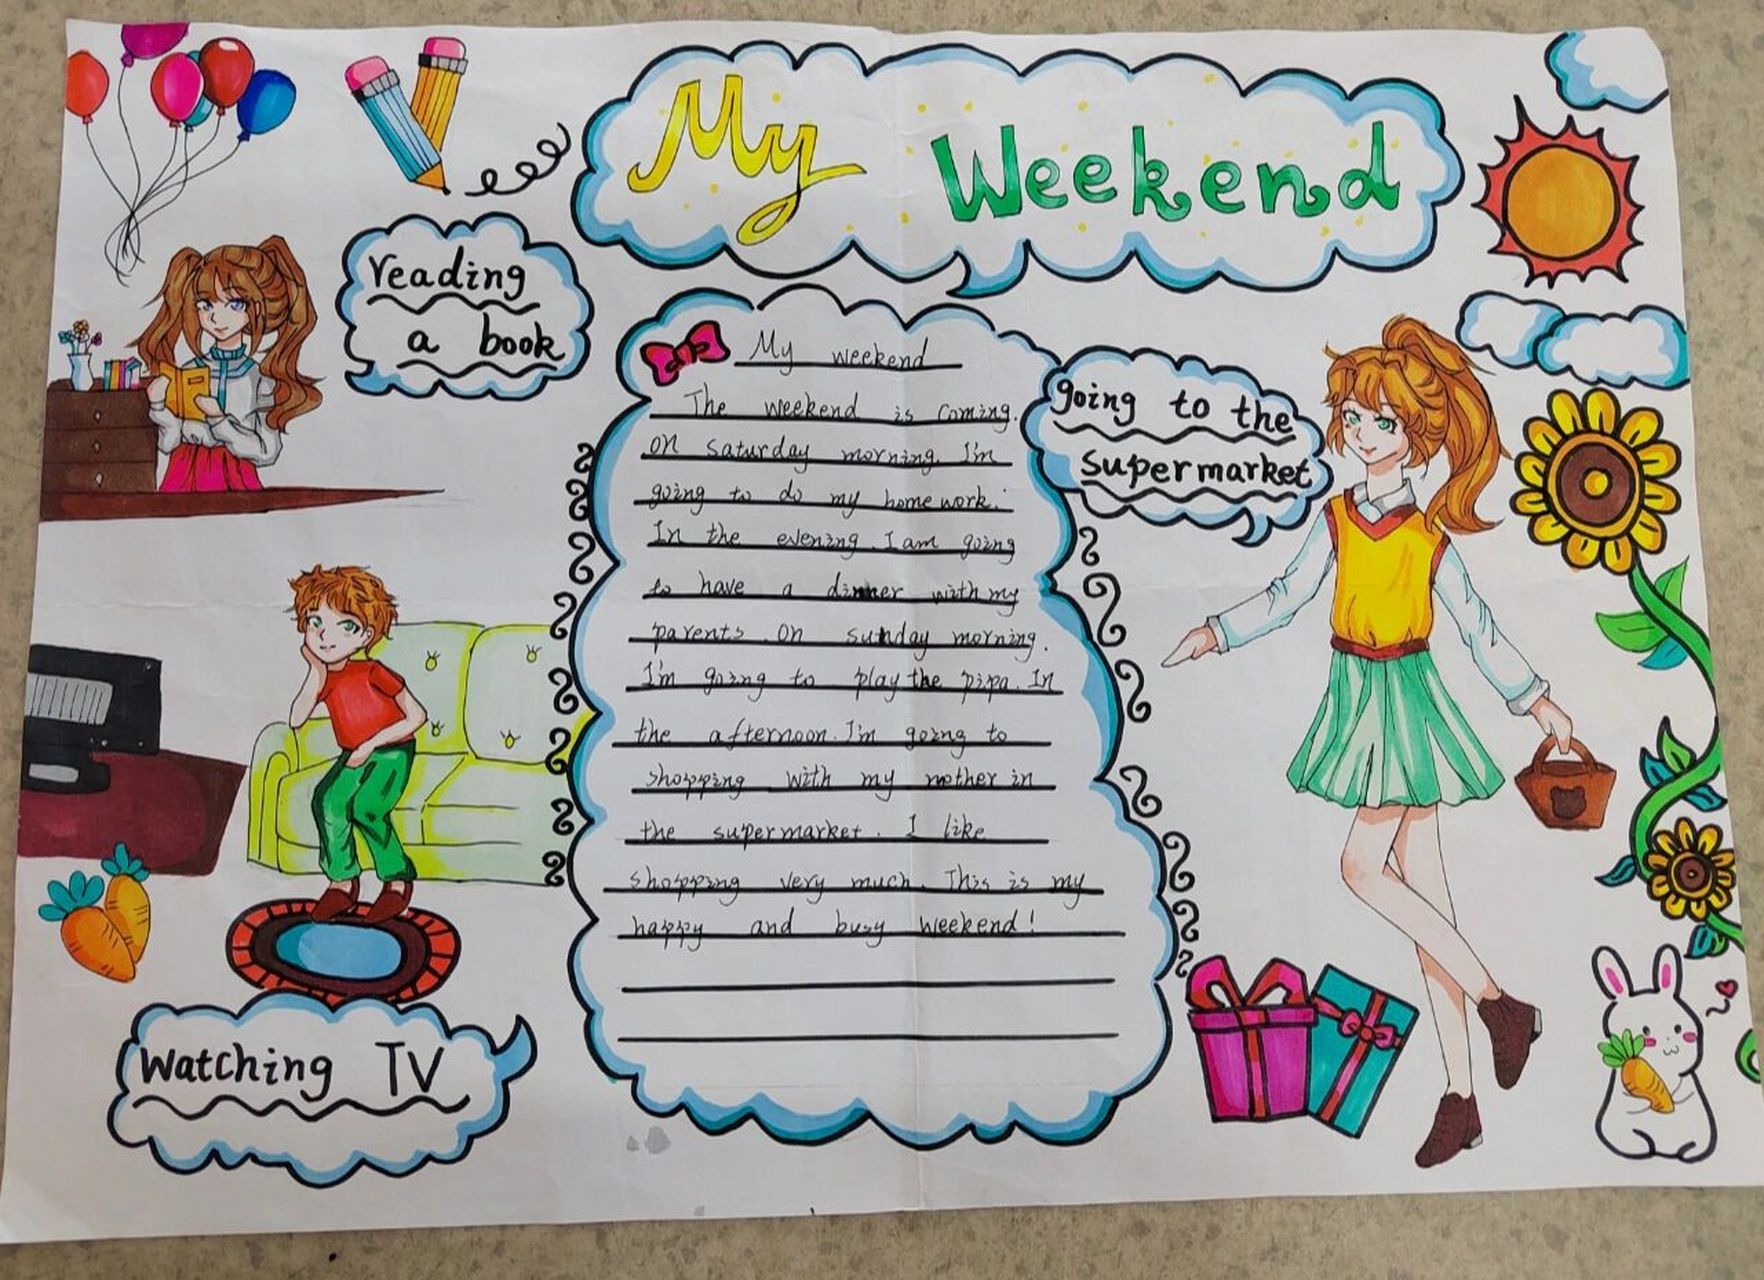 My Weekend
reading
a book
My weekend
The weekend is coming.
on saturday morning. I'm
going to do my homework.
In the evening. I am going
to have a dinner with my
parents. on sunday morning.
I'm going to play the pipa. In
the afternoon. I'm going to
shopping with my mother in
the supermarket. I like
shopping very much. This is my
happy and busy weekend!
going to the
supermarket
Watching TV